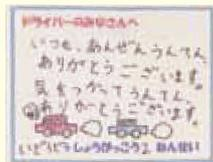 ドライバーのみなさんへ
いつも、あんぜんうんてん、
ありがとうございます。
気をつかってうんてん、
ありがとうございます。
しょうがっこう2ねんせい